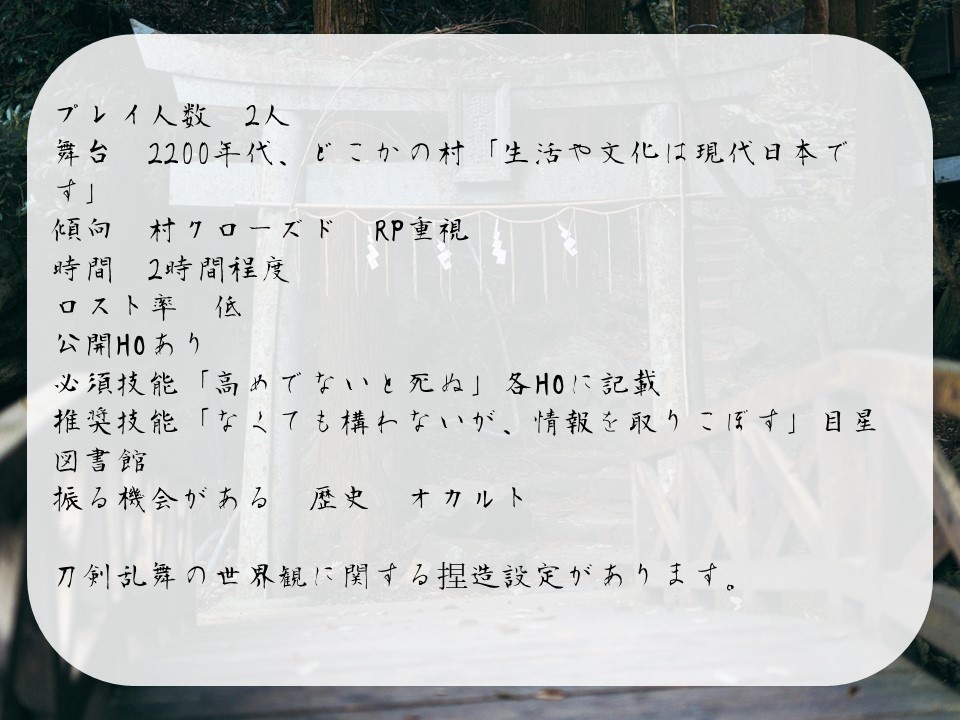 プレイ人数　2人
舞台　2200年代、どこかの村「生活や文化は現代日本で
す」
傾向　村クローズド　RP重視
時間　2時間程度
ロスト率　低
公開HOあり
必須技能「高めでないと死ぬ」各HOに記載
推奨技能「なくても構わないが、情報を取りこぼす」目星
図書館
振る機会がある　歴史　オカルト
刀剣乱舞の世界観に関する捏造設定があります。